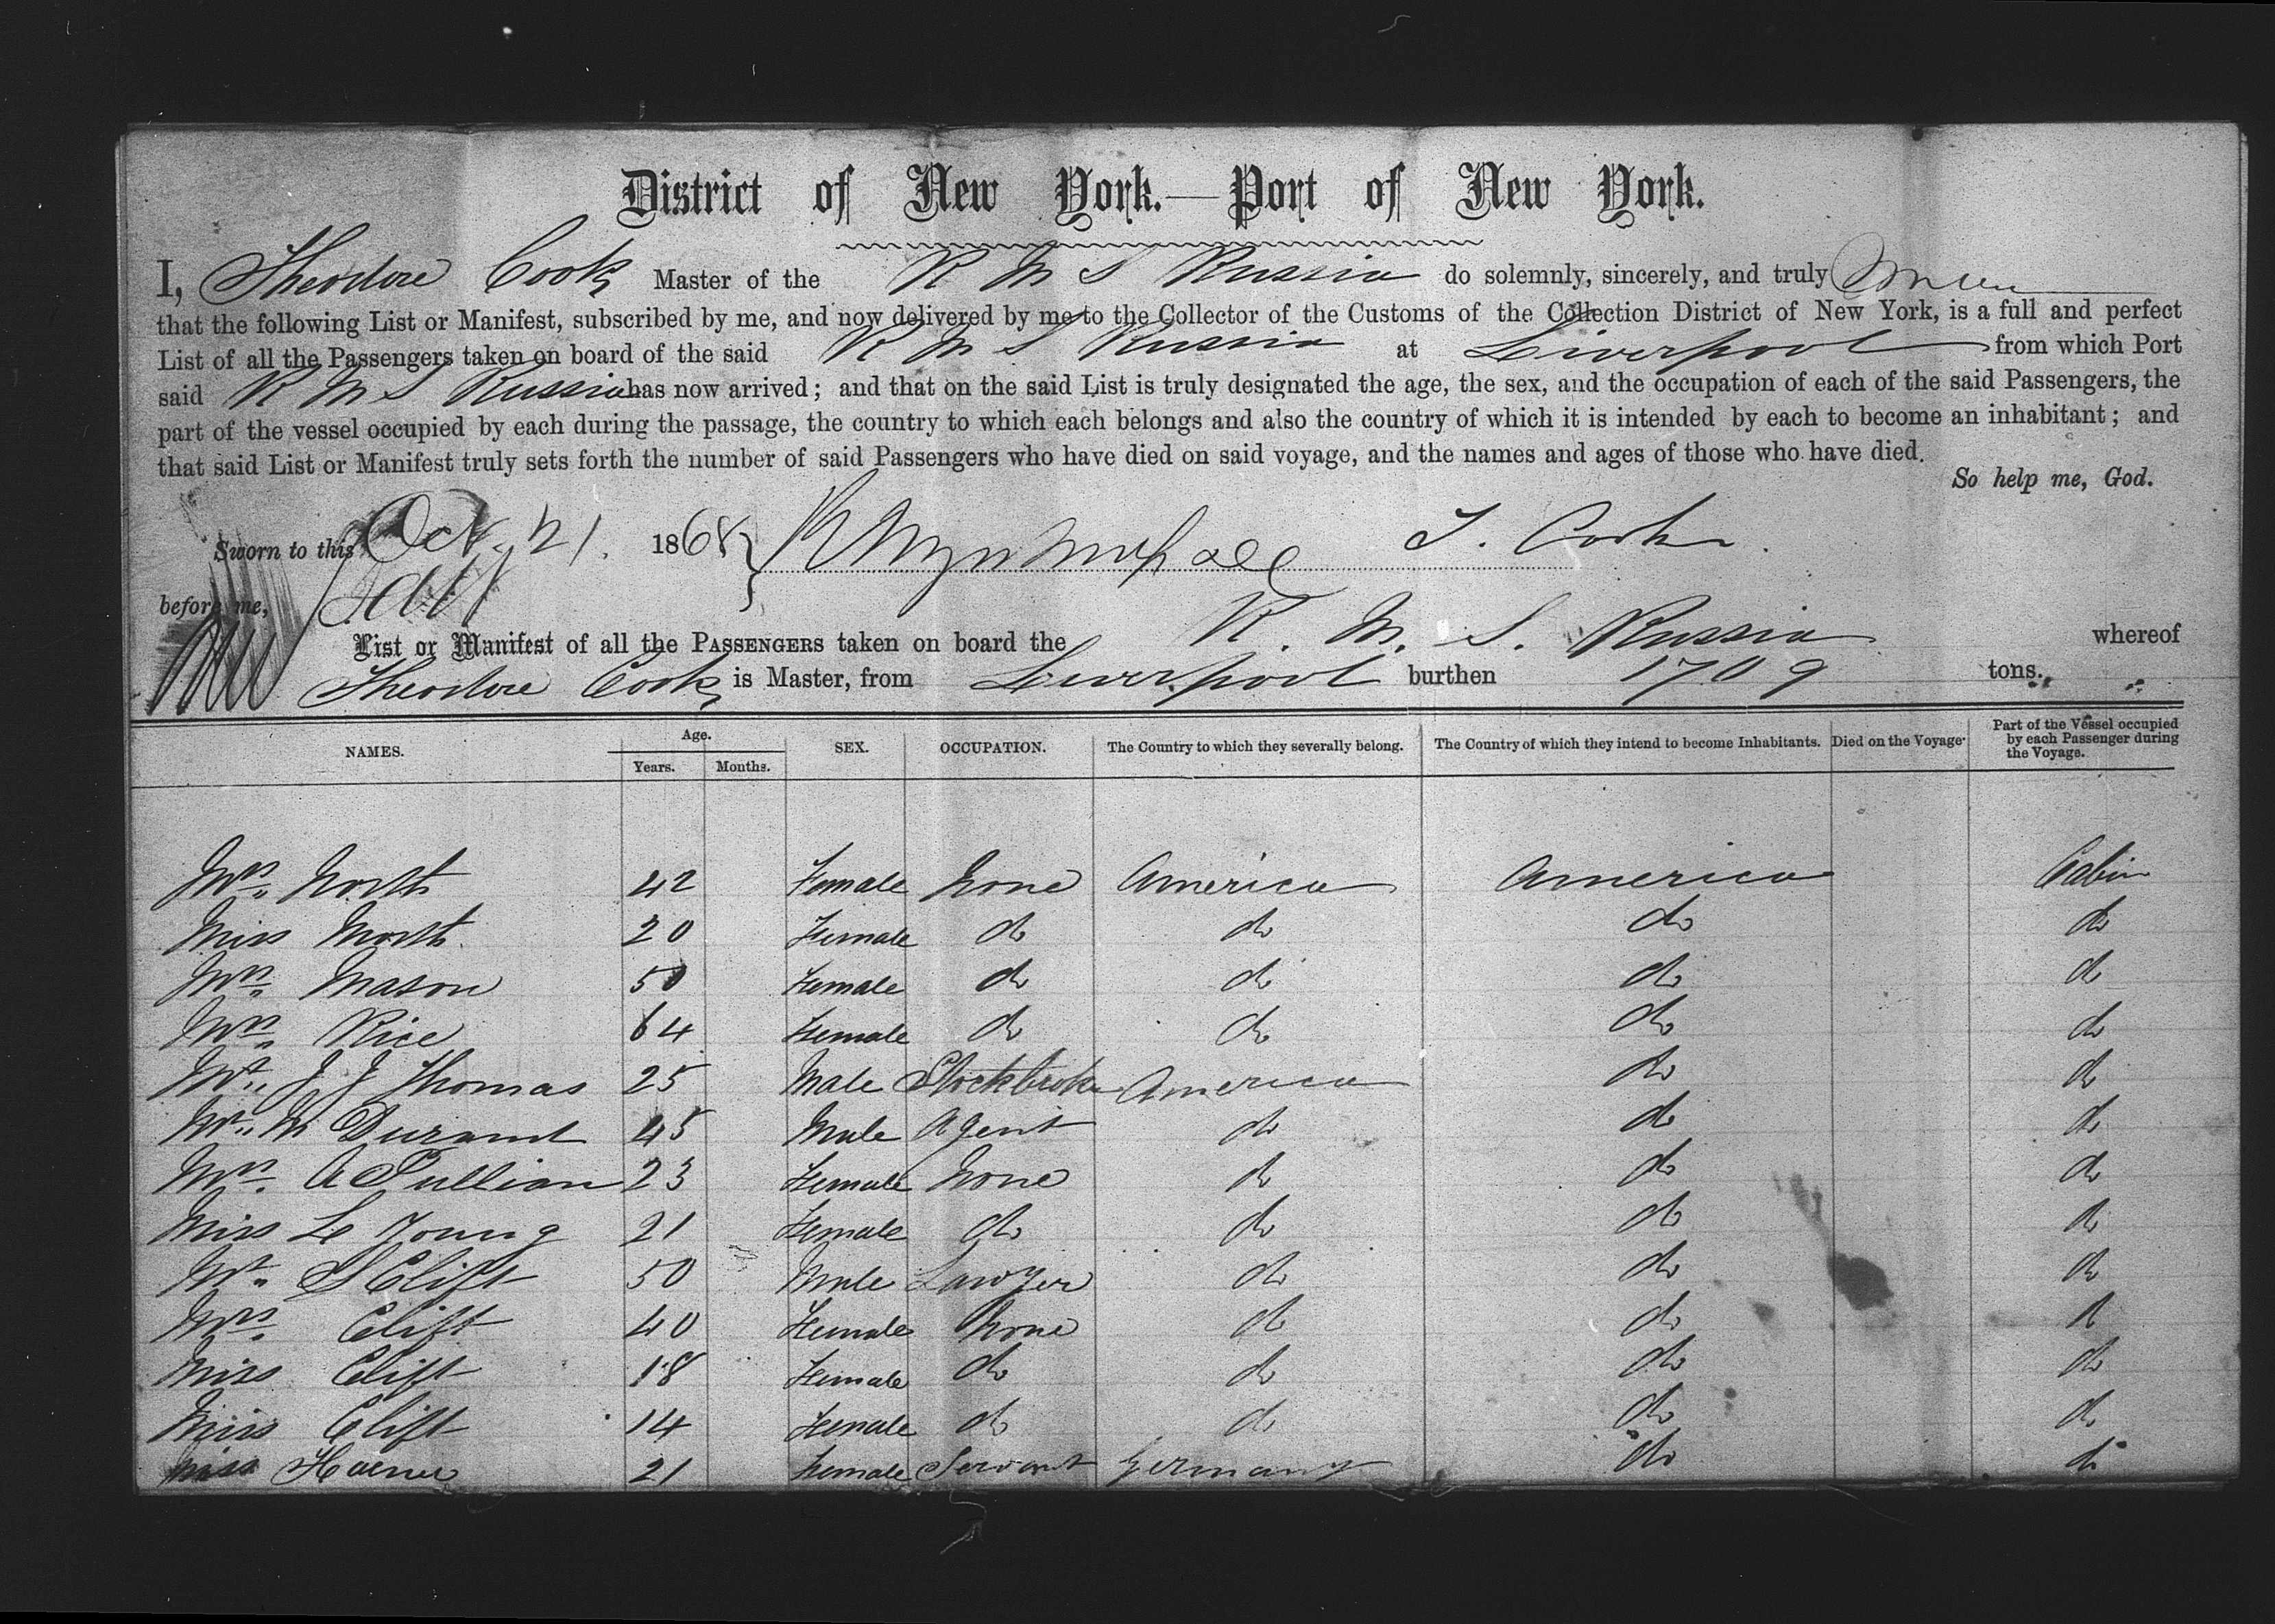 District of New York.—Port of New York.
I, Theodore Cook Master of the R M S Russia do solemnly, sincerely, and truly
that the following List or Manifest, subscribed by me, and now delivered by me to the Collector of the Customs of the Collection District of New York, is a full and perfect
List of all the Passengers taken on board of the said R M S Russia at Liverpool from which Port
said R M S Russia has now arrived; and that on the said List is truly designated the age, the sex, and the occupation of each of the said Passengers, the
part of the vessel occupied by each during the passage, the country to which each belongs and also the country of which it is intended by each to become an inhabitant; and
that said List or Manifest truly sets forth the number of said Passengers who have died on said voyage, and the names and ages of those who have died.
So help me, God.
Sworn to this Oct 21. 1868 T. Cook
before me,
List or Manifest of all the PASSENGERS taken on board the R. M. S. Russia whereof
Theodore Cook is Master, from Liverpool burthen 1709 tons.
NAMES. Age. Years. Months. SEX. OCCUPATION. The Country to which they severally belong. The Country of which they intend to become Inhabitants. Died on the Voyage. Part of the Vessel occupied by each Passenger during the Voyage.
Mrs North 42 Female None America America Cabin
Miss North 20 Female do do do do
Mrs Mason 50 Female do do do do
Mrs Rice 64 Female do do do do
Mr J J Thomas 25 Male Stockbroker America do do
Mr M Durand 45 Male Agent do do do
Mrs A Pullian 23 Female None do do do
Miss Le Young 21 Female do do do do
Mr S Clift 50 Male Lawyer do do do
Mrs Clift 40 Female None do do do
Miss Clift 18 Female do do do do
Miss Clift 14 Female do do do do
Miss 21 Female Servant Germany do do